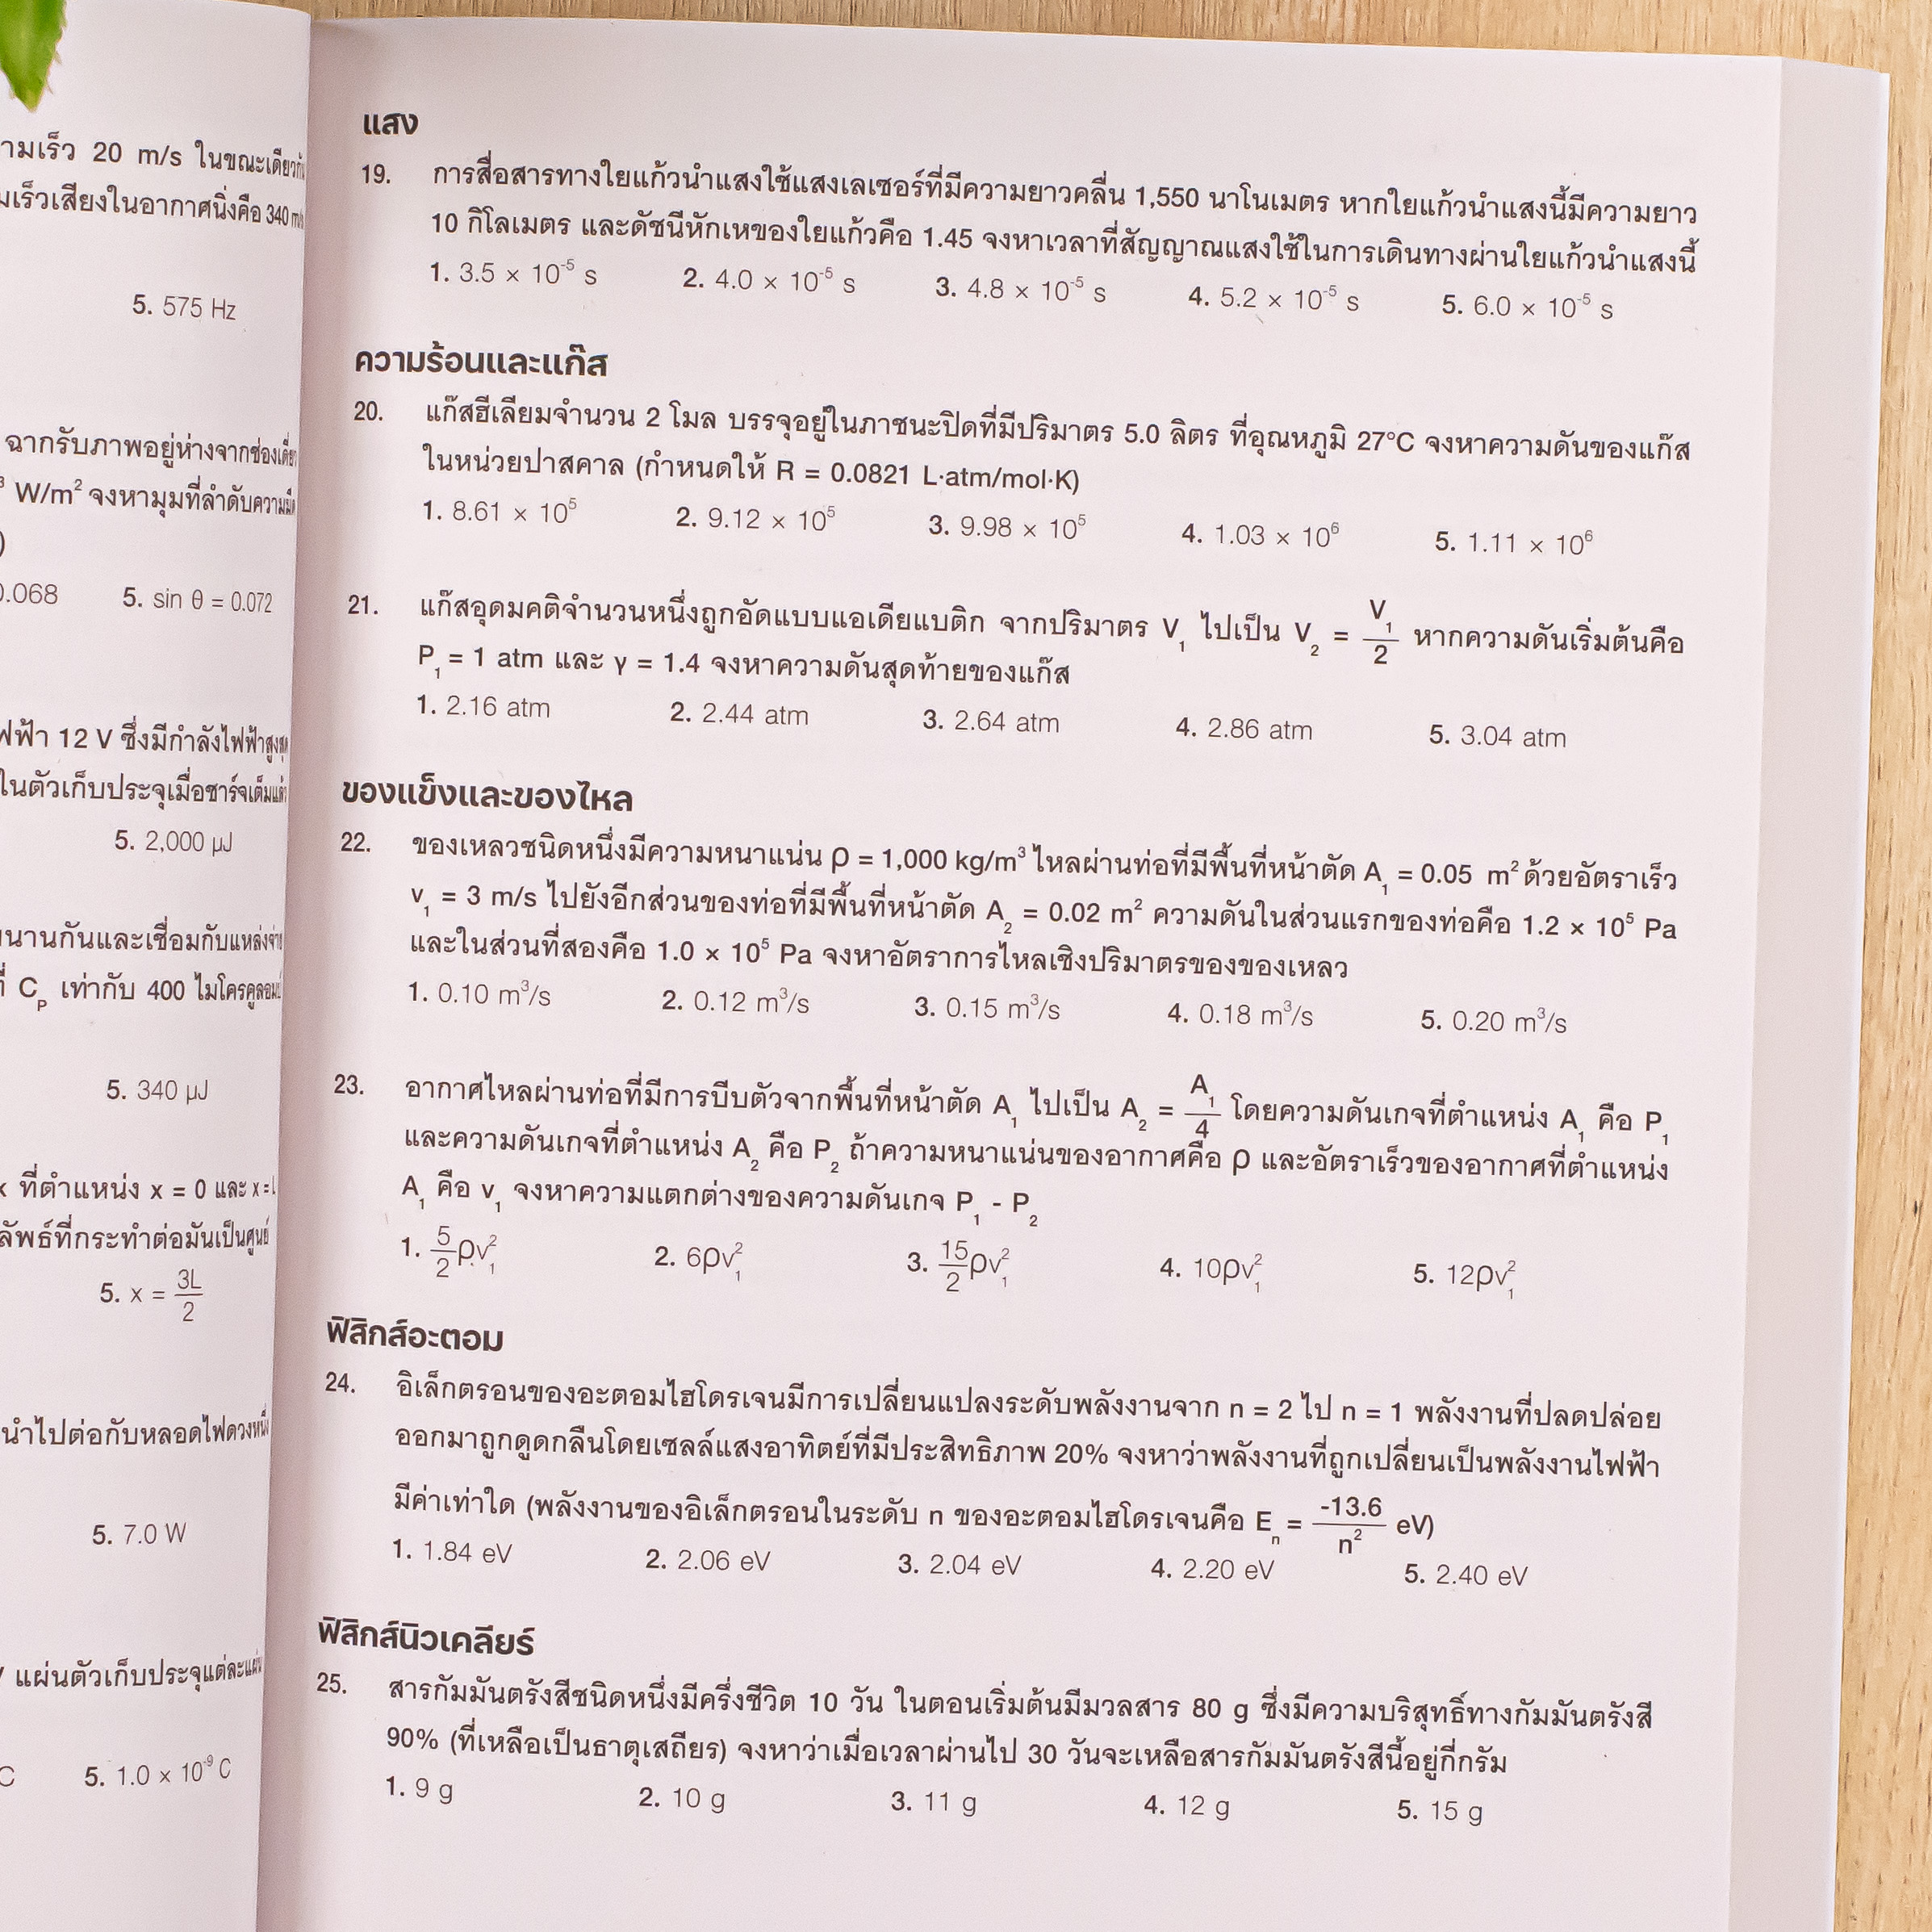 ความเร็ว 20 m/s ในขณะเดียวกัน
เร็วเสียงในอากาศนิ่งคือ 340 m/s
5. 575 Hz
ฉากรับภาพอยู่ห่างจากช่องเดี่ยว
W/m² จงหามุมที่ลำดับความมืด
)
0.068 5. sin θ = 0.072
12 V ซึ่งมีกำลังไฟฟ้าสูงสุด
ในตัวเก็บประจุเมื่อชาร์จเต็มแล้ว
5. 2,000 µJ
นานกันและเชื่อมกับแหล่งจ่าย
C_P เท่ากับ 400 ไมโครคูลอมบ์
5. 340 µJ
x ที่ตำแหน่ง x = 0 และ x = L
ลัพธ์ที่กระทำต่อมันเป็นศูนย์
5. x = 3L/2
นำไปต่อกับหลอดไฟดวงหนึ่ง
5. 7.0 W
แผ่นตัวเก็บประจุแต่ละแผ่น
C 5. 1.0 × 10⁻⁹ C
แสง
19. การสื่อสารทางใยแก้วนำแสงใช้แสงเลเซอร์ที่มีความยาวคลื่น 1,550 นาโนเมตร หากใยแก้วนำแสงนี้มีความยาว
10 กิโลเมตร และดัชนีหักเหของใยแก้วคือ 1.45 จงหาเวลาที่สัญญาณแสงใช้ในการเดินทางผ่านใยแก้วนำแสงนี้
1. 3.5 × 10⁻⁵ s 2. 4.0 × 10⁻⁵ s 3. 4.8 × 10⁻⁵ s 4. 5.2 × 10⁻⁵ s 5. 6.0 × 10⁻⁵ s
ความร้อนและแก๊ส
20. แก๊สฮีเลียมจำนวน 2 โมล บรรจุอยู่ในภาชนะปิดที่มีปริมาตร 5.0 ลิตร ที่อุณหภูมิ 27°C จงหาความดันของแก๊ส
ในหน่วยปาสคาล (กำหนดให้ R = 0.0821 L·atm/mol·K)
1. 8.61 × 10⁵ 2. 9.12 × 10⁵ 3. 9.98 × 10⁵ 4. 1.03 × 10⁶ 5. 1.11 × 10⁶
21. แก๊สอุดมคติจำนวนหนึ่งถูกอัดแบบแอเดียแบติก จากปริมาตร V₁ ไปเป็น V₂ = V₁/2 หากความดันเริ่มต้นคือ
P₁ = 1 atm และ γ = 1.4 จงหาความดันสุดท้ายของแก๊ส
1. 2.16 atm 2. 2.44 atm 3. 2.64 atm 4. 2.86 atm 5. 3.04 atm
ของแข็งและของไหล
22. ของเหลวชนิดหนึ่งมีความหนาแน่น ρ = 1,000 kg/m³ ไหลผ่านท่อที่มีพื้นที่หน้าตัด A₁ = 0.05 m² ด้วยอัตราเร็ว
v₁ = 3 m/s ไปยังอีกส่วนของท่อที่มีพื้นที่หน้าตัด A₂ = 0.02 m² ความดันในส่วนแรกของท่อคือ 1.2 × 10⁵ Pa
และในส่วนที่สองคือ 1.0 × 10⁵ Pa จงหาอัตราการไหลเชิงปริมาตรของของเหลว
1. 0.10 m³/s 2. 0.12 m³/s 3. 0.15 m³/s 4. 0.18 m³/s 5. 0.20 m³/s
23. อากาศไหลผ่านท่อที่มีการบีบตัวจากพื้นที่หน้าตัด A₁ ไปเป็น A₂ = A₁/4 โดยความดันเกจที่ตำแหน่ง A₁ คือ P₁
และความดันเกจที่ตำแหน่ง A₂ คือ P₂ ถ้าความหนาแน่นของอากาศคือ ρ และอัตราเร็วของอากาศที่ตำแหน่ง
A₁ คือ v₁ จงหาความแตกต่างของความดันเกจ P₁ - P₂
1. 5/2 ρv₁² 2. 6ρv₁² 3. 15/2 ρv₁² 4. 10ρv₁² 5. 12ρv₁²
ฟิสิกส์อะตอม
24. อิเล็กตรอนของอะตอมไฮโดรเจนมีการเปลี่ยนแปลงระดับพลังงานจาก n = 2 ไป n = 1 พลังงานที่ปลดปล่อย
ออกมาถูกดูดกลืนโดยเซลล์แสงอาทิตย์ที่มีประสิทธิภาพ 20% จงหาว่าพลังงานที่ถูกเปลี่ยนเป็นพลังงานไฟฟ้า
มีค่าเท่าใด (พลังงานของอิเล็กตรอนในระดับ n ของอะตอมไฮโดรเจนคือ Eₙ = -13.6/n² eV)
1. 1.84 eV 2. 2.06 eV 3. 2.04 eV 4. 2.20 eV 5. 2.40 eV
ฟิสิกส์นิวเคลียร์
25. สารกัมมันตรังสีชนิดหนึ่งมีครึ่งชีวิต 10 วัน ในตอนเริ่มต้นมีมวลสาร 80 g ซึ่งมีความบริสุทธิ์ทางกัมมันตรังสี
90% (ที่เหลือเป็นธาตุเสถียร) จงหาว่าเมื่อเวลาผ่านไป 30 วันจะเหลือสารกัมมันตรังสีนี้อยู่กี่กรัม
1. 9 g 2. 10 g 3. 11 g 4. 12 g 5. 15 g